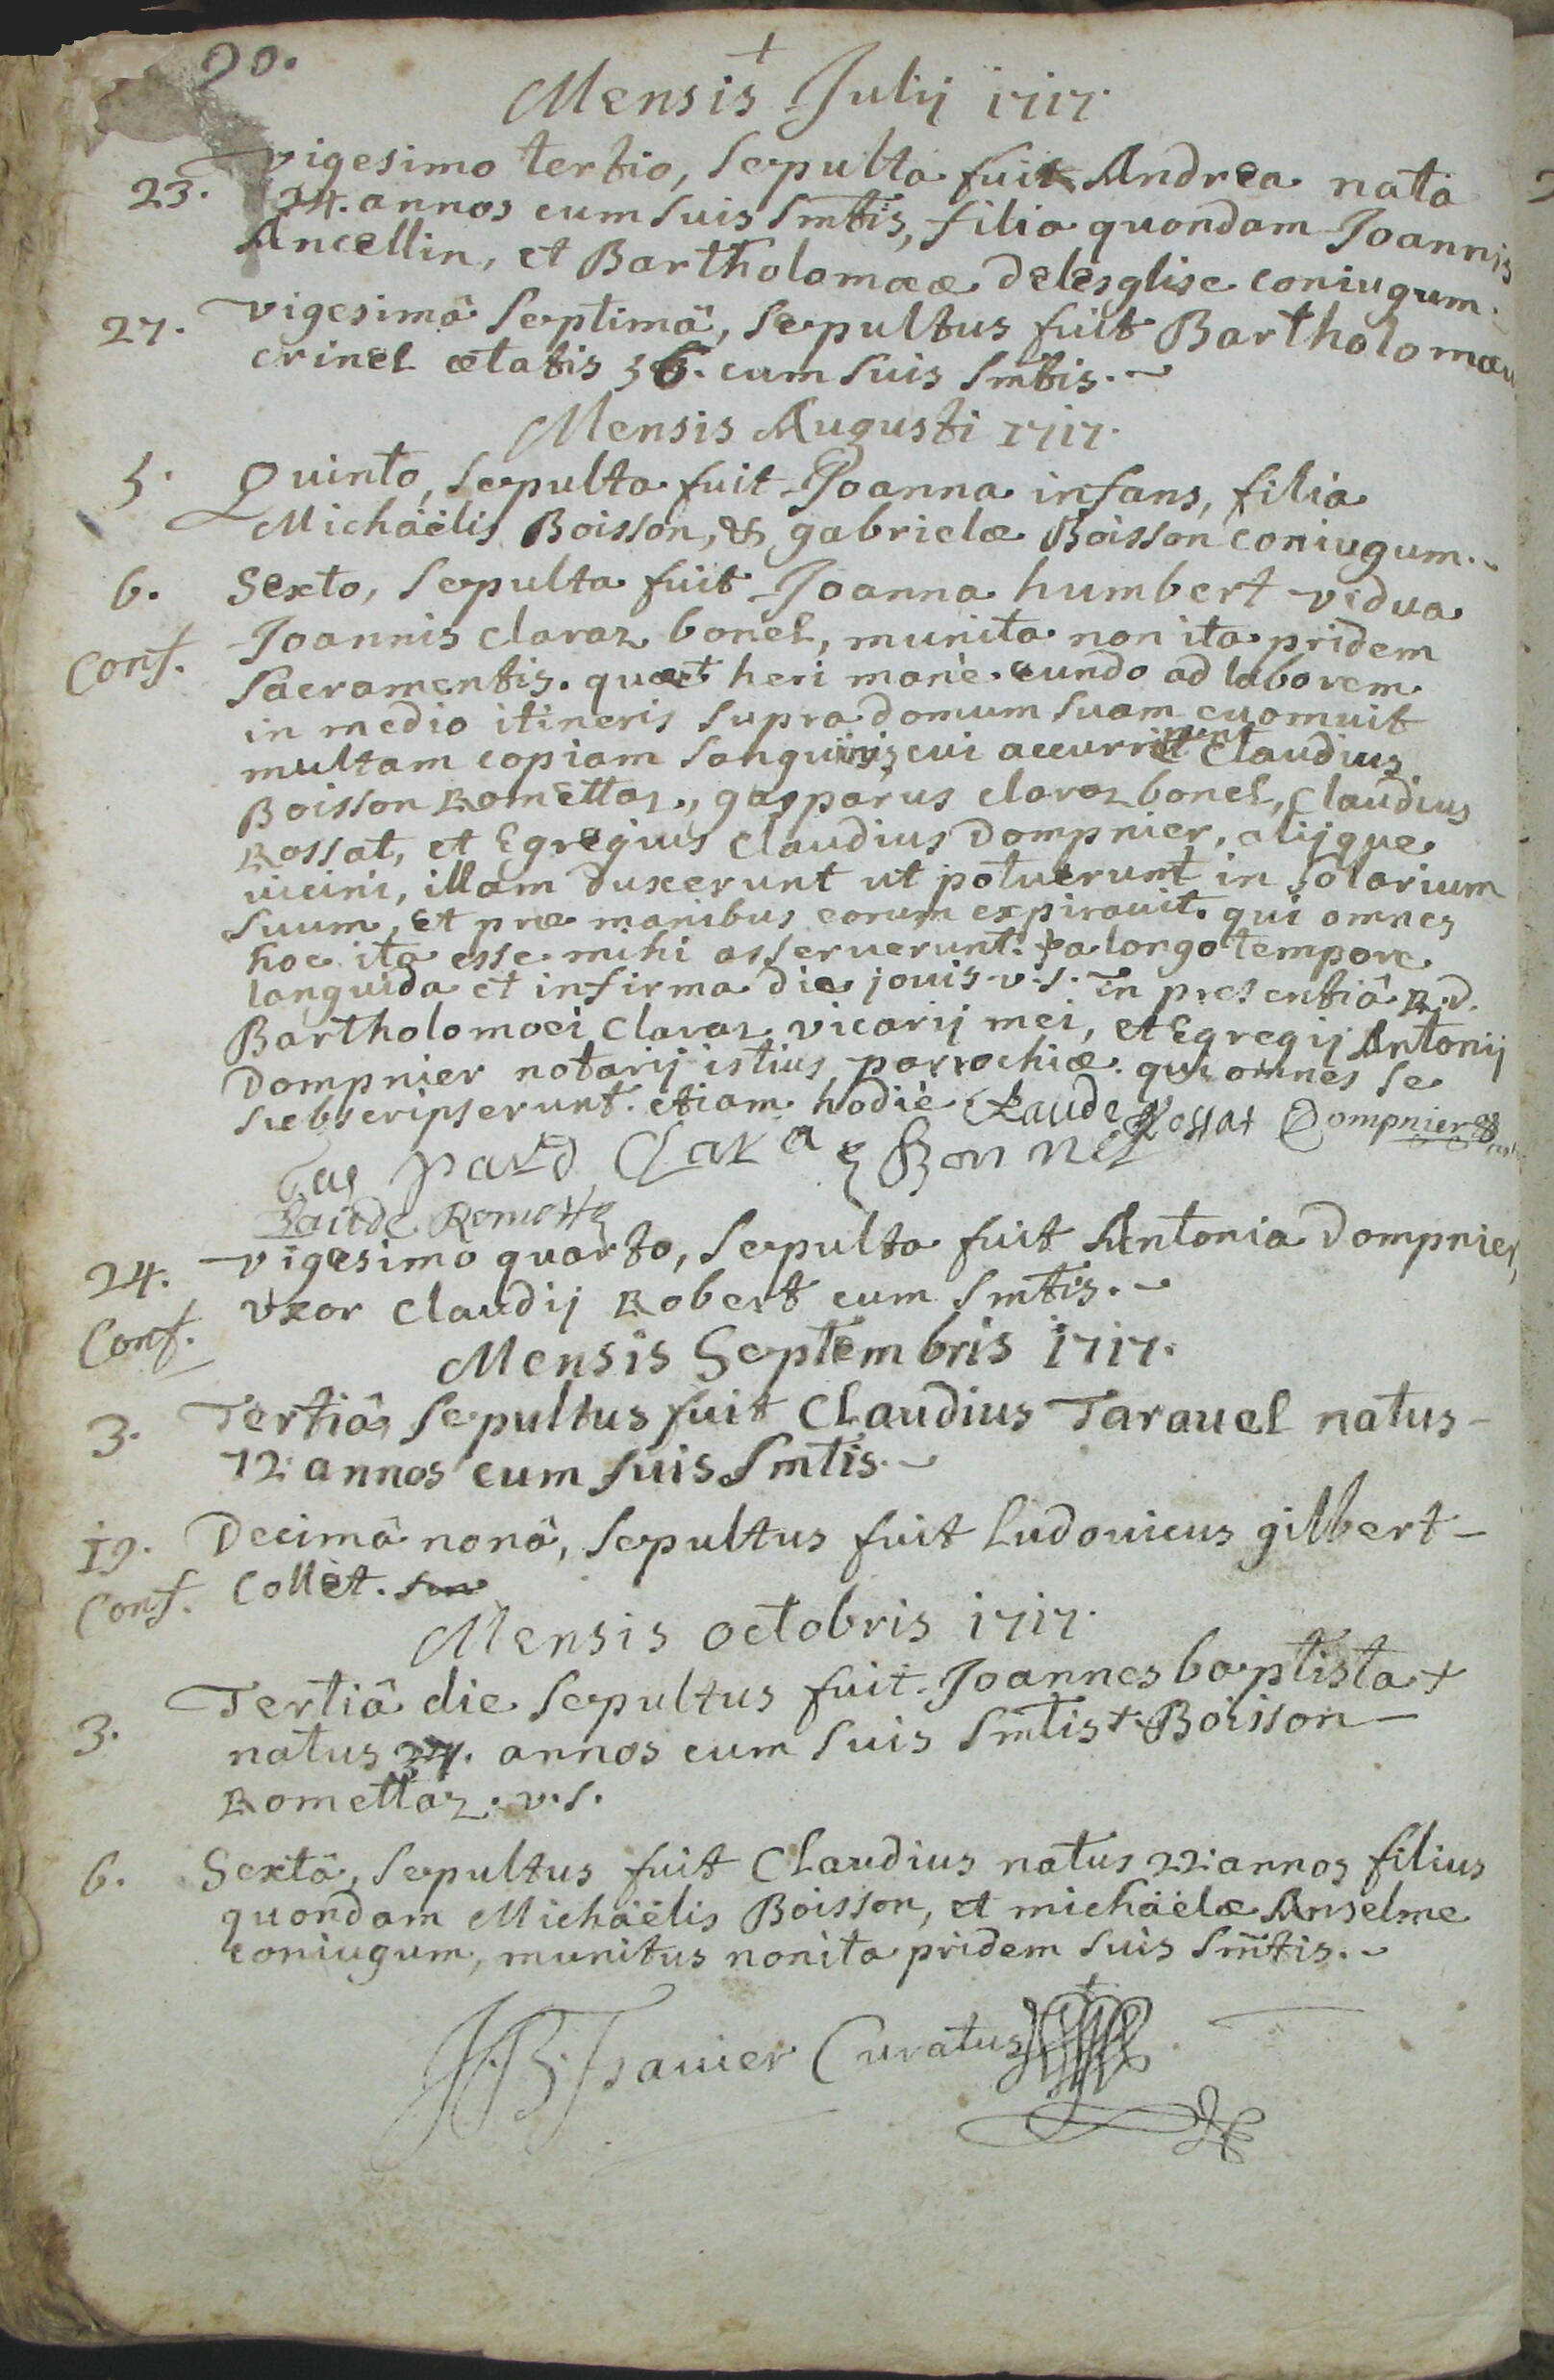 90.
+
Mensis Julij 1717.
23. vigesimo tertio, sepulta fuit Andrea nata
24. annos cum suis smtis, filia quondam Joannis
Ancellin, et Bartholomaeæ delesglise coniugum.
27. vigesimâ septimâ, sepultus fuit Bartholomæu
crinel ætatis 36. cum suis smtis.
Mensis Augusti 1717.
5. Quinto, sepulta fuit Joanna infans, filia
Michaëlis Boisson, & gabrielæ Boisson coniugum.
6. Sexto, sepulta fuit Joanna humbert vidua
Conf. Joannis claraz bonel, munita non ita pridem
sacramentis. quæ heri manè eundo ad laborem
in medio itineris supra domum suam euomuit
multam copiam sanguinis, cui accurrerunt Claudius
Boisson Romettaz, gasparus claraz bonel, Claudius
Rossat, et Egregius Claudius Dompnier, alijque
vicini, illam duxerunt ut potuerunt in solarium
suum, et præ manibus eorum expirauit. qui omnes
hoc ita esse mihi asseruerunt. a longo tempore
languida et infirma die jouis v.s. in presentiâ R.d.
Bartholomoei Claraz vicarij mei, et Egregij Antonij
Dompnier notarij istius parrochiæ. qui omnes se
subscripserunt. etiam hodiè Claude Rossat Dompnier
Gaspard Claraz Bonnel
Laude Romettaz
24. vigesimo quarto, sepulta fuit Antonia Dompnier,
Conf. vxor Claudij Robert cum smtis.
Mensis Septembris 1717.
3. Tertiâ, sepultus fuit Claudius Tarauel natus
72. annos cum suis smtis.
19. Decimâ nonâ, sepultus fuit Ludouicus gilbert
Conf. Collet.
Mensis octobris 1717.
3. Tertiâ die sepultus fuit Joannes baptista +
natus 27. annos cum suis smtis + Boisson
Romettaz. v.s.
6. Sextâ, sepultus fuit Claudius natus 22. annos filius
quondam Michaëlis Boisson, et michaëlæ Anselme
coniugum, munitus non ita pridem suis smtis.
JB Tsauier Curatus